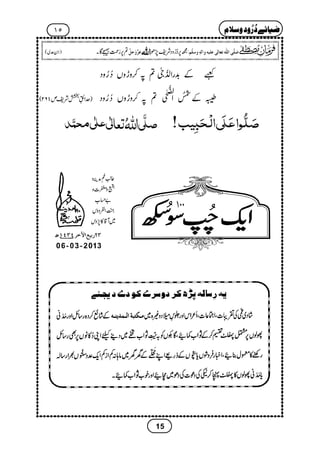 ضیائے دُرُود وسلام
۱۵
فرمانِ مصطفٰے صلی اللہ تعالٰی علیہ والہ وسلم: مجھ پر دُرُود شریف پڑھو اللہ عزوجل تم پر رحمت بھیجے گا۔ (ابن عدی)
کعبے کے بدرالدُّجٰی تم پہ کروڑوں دُرُود
طیبہ کے شمسُ الضُّحٰی تم پہ کروڑوں دُرُود (حدائقِ بخشش شریف ص ۲۶۴)
صَلُّوا عَلَی الْحَبِیب! صلَّی اللهُ تعالٰی علٰی محمَّد
۱۰۰
ایک چُپ سو سُکھ
طالبِ غمِ مدینہ و
بقیع و مغفرت و
بے حساب
جنّت الفردوس
میں آقا کا پڑوس
۲۳ ربیع الآخر ۱۴۳۴ھ
06-03-2013
یہ رسالہ پڑھ کر دوسرے کو دے دیجئے
شادی غمی کی تقریبات، اجتماعات، اعراس اور جلوسِ میلاد وغیرہ میں مکتبۃ المدینہ کے شائع کردہ رسائل اور مدنی
پھولوں پر مشتمل پمفلٹ تقسیم کر کے ثواب کمائیے، گاہکوں کو بہ نیتِ ثواب تحفے میں دینے کیلئے اپنی دکانوں پر بھی رسائل
رکھنے کا معمول بنائیے، اخبار فروشوں یا بچوں کے ذریعے اپنے محلے کے گھر گھر میں ماہانہ کم از کم ایک عدد سنتوں بھرا رسالہ
یا مدنی پھولوں کا پمفلٹ پہنچا کر نیکی کی دعوت کی دھومیں مچائیے اور خوب ثواب کمائیے۔
15